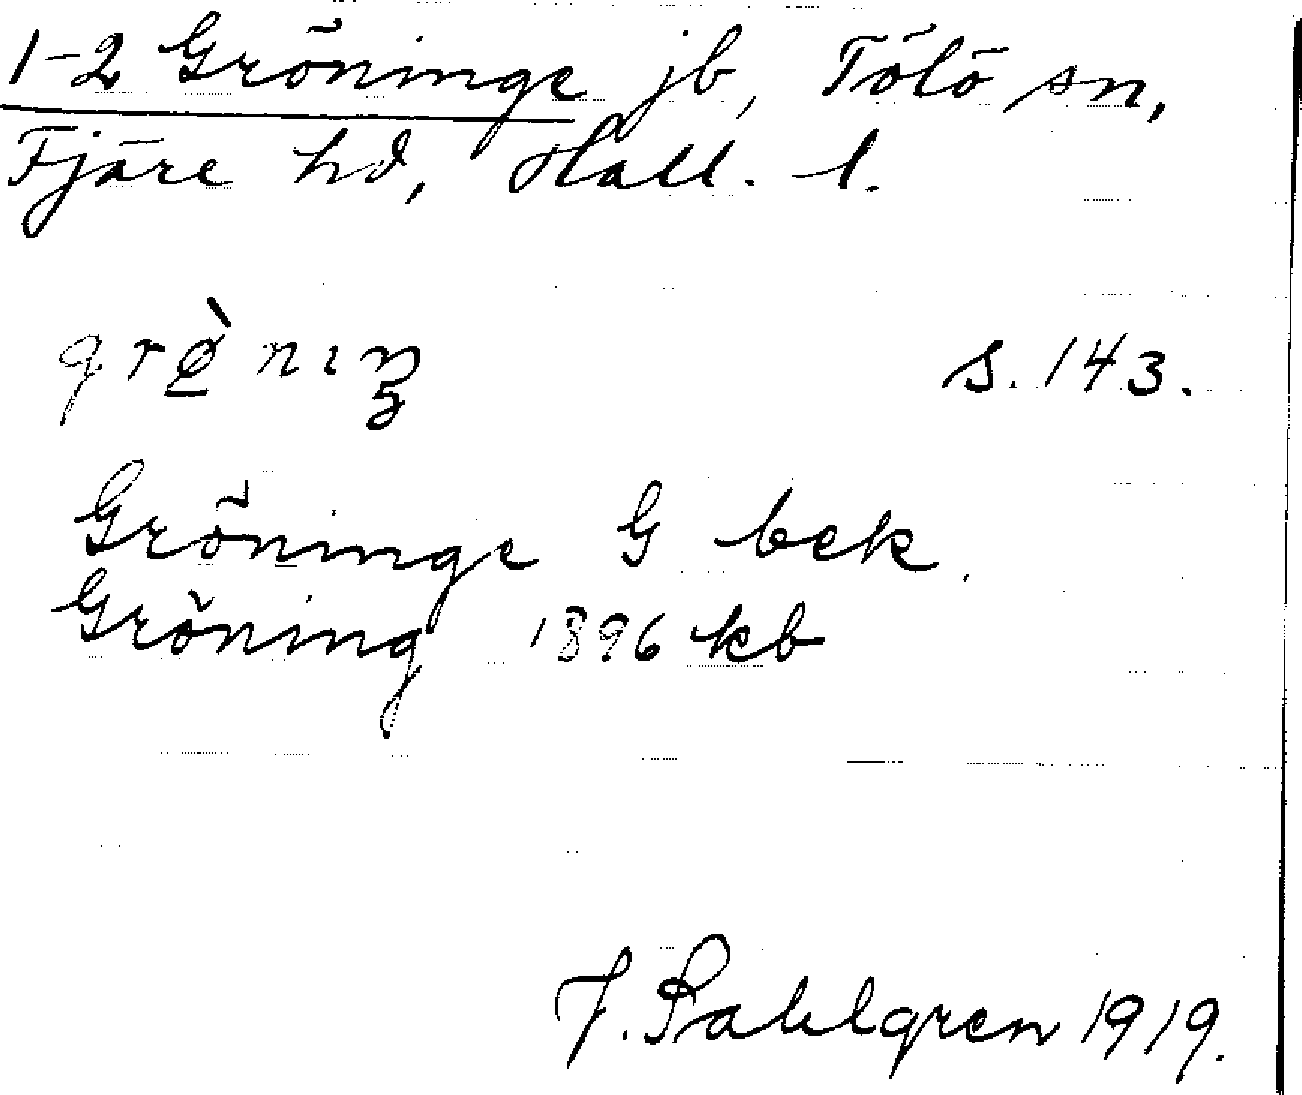 1-2 Gröninge jb, Tölö sn,
Fjäre hd, Hall. l.
grø̀nıŋ s. 143.
Gröninge G bek.
Gröning 1896 kb
J. Sahlgren 1919.